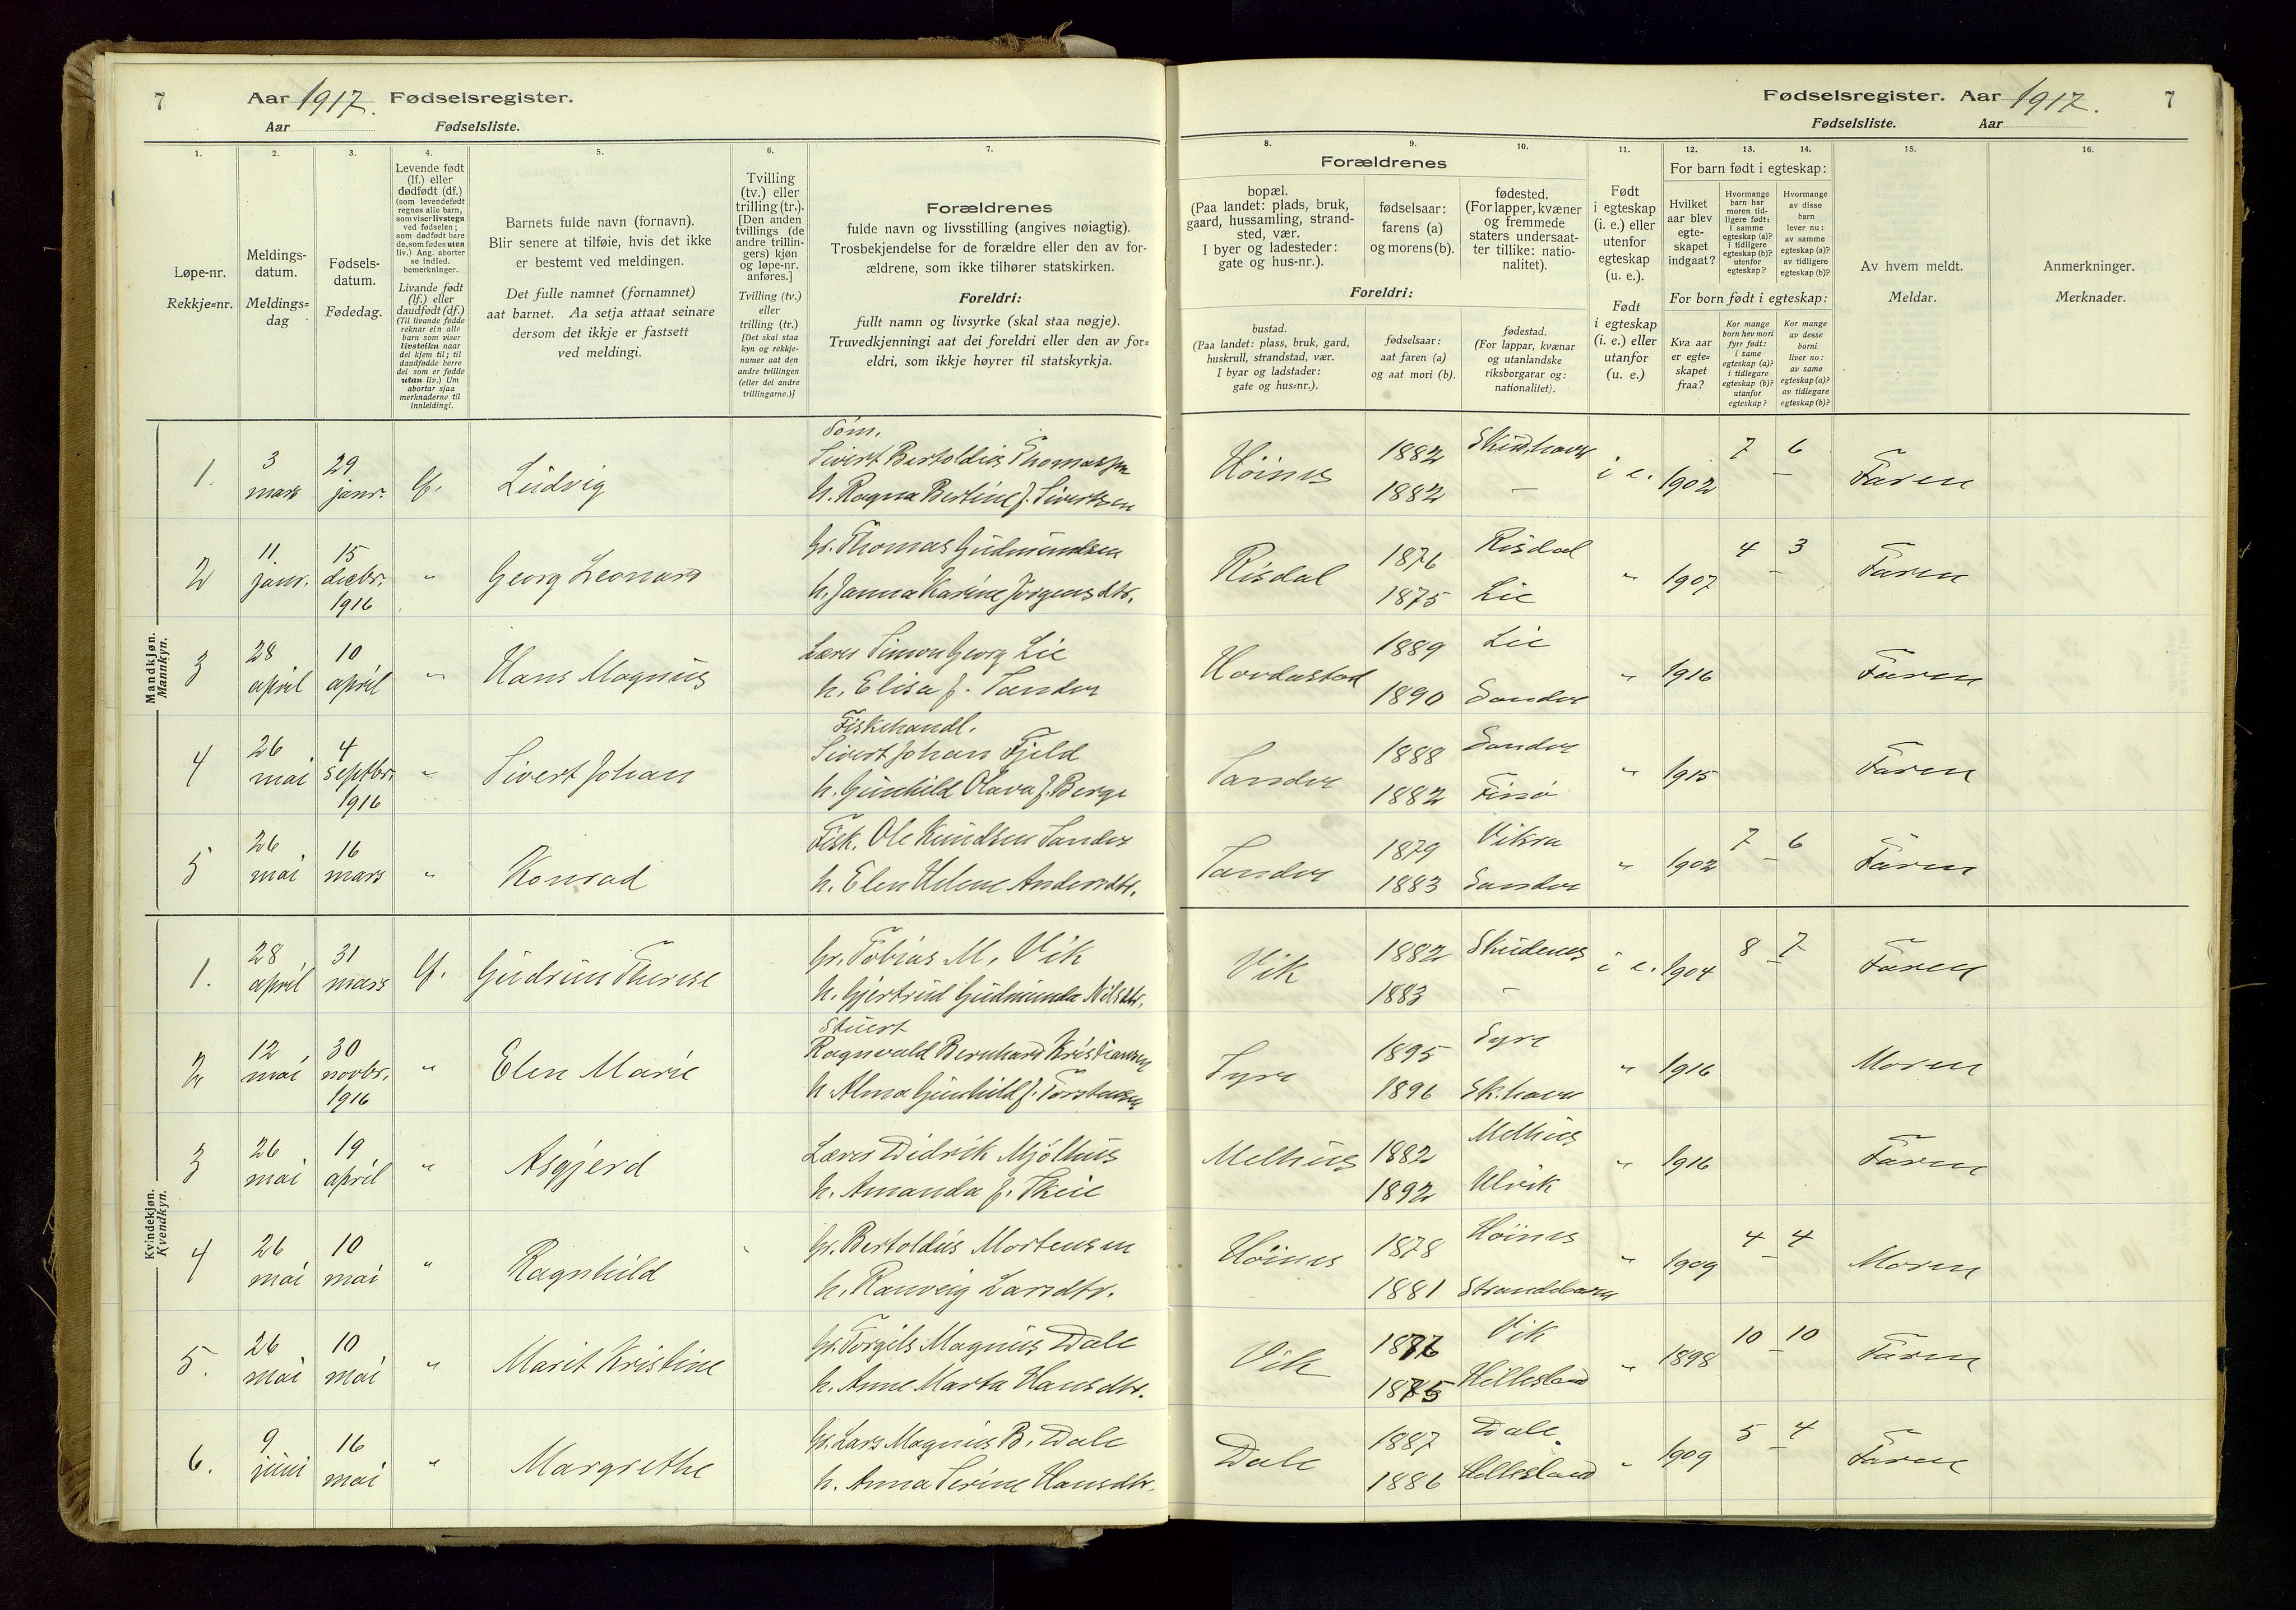 7 Aar 1917. Fødselsregister.
Aar Fødselsliste.
Fødselsregister. Aar 1917. 7
Fødselsliste. Aar
1. 2. 3. 4. 5. 6. 7.
Løpe-nr.
Rekkje=nr.
Meldings-
datum.
Meldings=
dag
Fødsels-
datum.
Fødedag.
Levende født
(lf.) eller
dødfødt (df.)
(som levendefødt
regnes alle barn,
som viser livstegn
ved fødselen;
som dødfødt bare
de, som fødes uten
liv.) Ang. aborter
se indled.
bemerkninger.
Livande født
(lf.) eller
daudfødt (df.)
(Til livande fødde
reknar ein alle
barn som viser
livsteikn naar
dei kjem til; til
daudfødde berre
dei som er fødde
utan liv.) Um
abortar sjaa
merknaderne til
innleidingi.
Barnets fulde navn (fornavn).
Blir senere at tilføie, hvis det ikke
er bestemt ved meldingen.
Det fulle namnet (fornamnet)
aat barnet. Aa setja attaat seinare
dersom det ikkje er fastsett
ved meldingi.
Tvilling
(tv.) eller
trilling (tr.).
[Den anden
tvillings (de
andre trillin-
gers) kjøn
og løpe-nr.
anføres.]
Tvilling (tv.)
eller
trilling (tr.)
[Det skal staa
kyn og rekkje-
numer aat den
andre tvillingen
(eller dei andre
trillingarne.)]
Forældrenes
fulde navn og livsstilling (angives nøiagtig).
Trosbekjendelse for de forældre eller den av for-
ældrene, som ikke tilhører statskirken.
Foreldri:
fullt namn og livsyrke (skal staa nøgje).
Truvedkjenningi aat dei foreldri eller den av for-
eldri, som ikkje høyrer til statskyrkja.
8. 9. 10. 11. 12. 13. 14. 15. 16.
Forældrenes
bopæl.
(Paa landet: plads, bruk,
gaard, hussamling, strand-
sted, vær.
I byer og ladesteder:
gate og hus-nr.).
fødselsaar:
farens (a)
og morens (b).
fødested.
(For lapper, kvæner
og fremmede
staters undersaat-
ter tillike: natio-
nalitet).
Foreldri:
bustad.
(Paa landet: plass, bruk, gard,
huskrull, strandstad, vær.
I byar og ladstader:
gate og hus=nr.).
fødselsaar:
aat faren (a)
og aat mori (b).
fødestad.
(For lappar, kvænar
og utanlandske
riksborgarar og:
nationalitet).
Født
i egteskap
(i. e.) eller
utenfor
egteskap
(u. e.).
Født
i egteskap
(i. e.) eller
utanfor
egteskap
(u. e.)
For barn født i egteskap:
Hvilket
aar blev
egte-
skapet
indgaat?
Hvormange
barn har
moren tid-
ligere født:
i samme
egteskap (a)?
i tidligere
egteskap (b)?
utenfor
egteskap?
Hvormange
av disse
barn
lever nu:
av samme
egteskap (a)?
av tidligere
egteskap (b)?
For born født i egteskap:
Kva aar
er egte=
skapet
fraa?
Kor mange
born hev mori
fyrr født:
i same
egteskap (a)?
i tidlegare
egteskap (b)?
utanfor
egteskap?
Kor mange
av desse
borni
liver no:
av same
egteskap (a)?
av tidlegare
egteskap (b)?
Av hvem meldt.
Meldar.
Anmerkninger.
Merknader.
Mandkjøn.
Mannkyn.
1. 3 mars 29 janr. lf. Ludvig
Tøm.
Sivert Bertoldius Thomassen
h. Ragna Bertine f. Sivertsen
Høines 1882 Skudehavn i e. 1902 7 – 6 Faren
1882 –
2 11 janr. 15 decbr. 1916 " Georg Leonard
Gr. Thomas Gudmundsen
h. Janna Karine Jørgensdtr.
Risdal 1876 Risdal " 1907 4 – 3 Faren
1875 Lie
3 28 april 10 april " Hans Magnus
Lærer Simon Georg Lie
h. Elisa f. Sandve
Hovdastad 1889 Lie " 1916 Faren
1890 Sandve
4 26 mai 4 septbr. 1916 " Sivert Johan
Fiskehandl.
Sivert Johan Fjeld
h. Gunhild Olava f. Berge
Sandve 1888 Sandve " 1915 Faren
1882 Finnø
5 26 mai 16 mars " Konrad
Fisk. Ole Knudsen Sandve
h. Elen Helene Andersdtr.
Sandve 1879 Vikra " 1902 7 – 6 Faren
1883 Sandve
Kvindekjøn.
Kvendkyn.
1. 28 april 31 mars lf. Gudrun Therese
Gr. Tobias M. Vik
h. Gjertrud Gudmunda Nilsdtr.
Vik 1882 Skudenes i e. 1904 8 – 7 Faren
1883 –
2 12 mai 30 novbr. 1916 " Elen Marie
Stuert
Ragnvald Bernhard Kristiansen
h Alma Gunhild f. Torstensen
Syre 1895 Syre " 1916 Moren
1896 Sk.havn
3 26 mai 19 april " Asgjerd
Lærer Didrik Mjølhus
h. Amanda f. Skeie
Melhus 1882 Melhus " 1916 Faren
1892 Ulvik
4 26 mai 10 mai " Ragnhild
Gr. Bertoldus Mortensen
h. Ranveig Larsdtr.
Høines 1878 Høines " 1909 4 – 4 Moren
1881 Strandebarm
5. 26 mai 10 mai " Marit Kristine
Gr. Torgils Magnus Dale
h. Anne Marta Hansdtr.
Vik 1876 Vik " 1898 10 – 10 Faren
1875 Hillesland
6. 9 juni 16 mai " Margrethe
Gr. Lars Magnus B. Dale
h. Anna Serine Hansdtr.
Dale 1887 Dale " 1909 5 – 4 Faren
1886 Hillesland